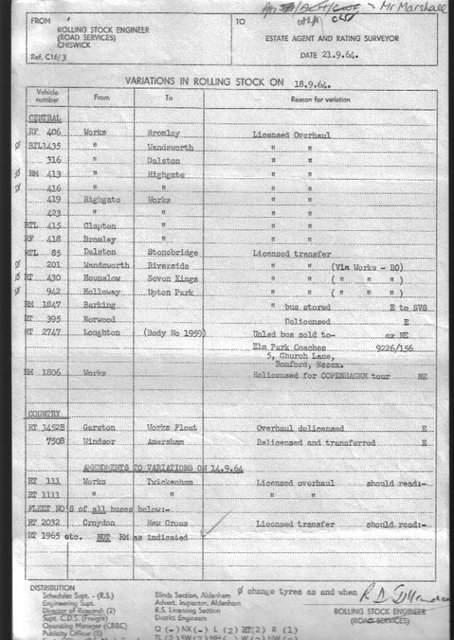 Mr Marshall
FROM ROLLING STOCK ENGINEER
(ROAD SERVICES)
CHISWICK
Ref. C16/3
TO
ESTATE AGENT AND RATING SURVEYOR
DATE 21.9.64.
VARIATIONS IN ROLLING STOCK ON 18.9.64.
Vehicle number From To Reason for variation
CENTRAL
RF 406 Works Bromley Licensed Overhaul
Ø RTL1435 " Wandsworth " "
316 " Dalston " "
Ø RM 413 " Highgate " "
Ø 416 " " " "
419 Highgate Works " "
423 " " " "
RTL 415 Clapton " " "
RF 418 Bromley " " "
RTL 85 Dalston Stonebridge Licensed transfer
Ø 201 Wandsworth Riverside " " (Via Works - BO)
Ø RT 430 Hounslow Seven Kings " " ( " " " )
Ø 942 Holloway Upton Park " " ( " " " )
RM 1847 Barking " bus stored E to SVS
RT 395 Norwood Delicensed E
RT 2747 Loughton (Body No 1959) Unlad bus sold to- ex NE
Elm Park Coaches 9226/156
5, Church Lane,
Romford, Essex.
RM 1806 Works Relicensed for COPENHAGEN tour NE
COUNTRY
RT 3452B Garston Works Float Overhaul delicensed E
750B Windsor Amersham Relicensed and transferred E
AMENDMENTS TO VARIATIONS ON 14.9.64
RT 111 Works Twickenham Licensed overhaul should read:-
RT 1111 " " " "
FLEET NO'S of all buses below:-
RT 2032 Croydon New Cross Licensed transfer should read:-
RT 1965 etc. NOT RM as indicated
DISTRIBUTION
Schedules Supt. - (R.S.)
Engineering Supt.
Director of Research (2)
Supt. C.D.S. (Freight)
Operating Manager (CM&C)
Publicity Officer (3)
Blinds Section, Aldenham
Advert. Inspector, Aldenham
R.S. Licensing Section
District Engineers
Ø change tyres as and when
ROLLING STOCK ENGINEER
(ROAD SERVICES)